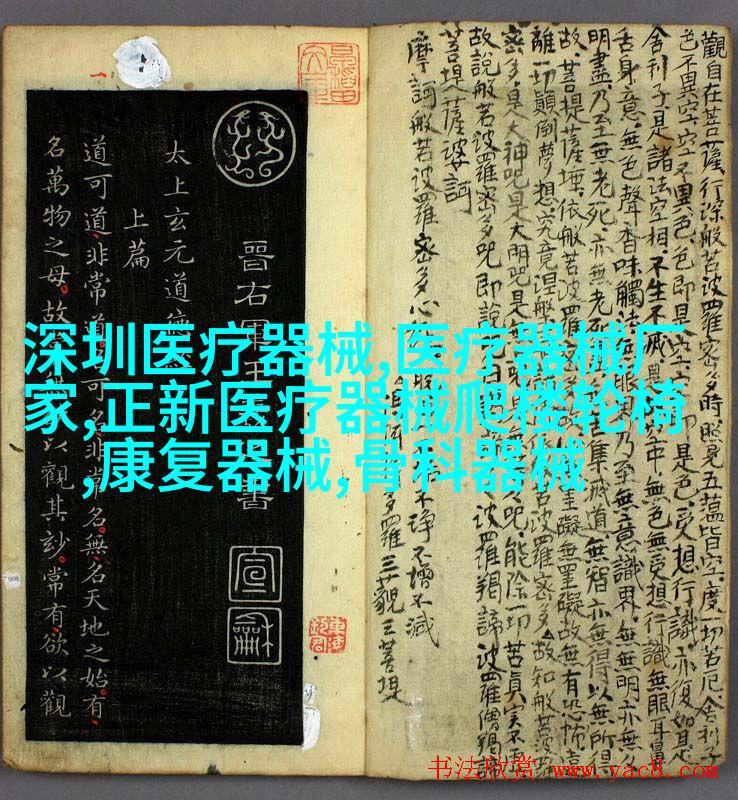 深圳医疗器械,医疗器械厂
家,正新医疗器械爬楼轮椅
,康复器械,骨科器械
觀自在菩薩行深般若波羅密多時照見五蘊皆空度一切苦厄舍利子
色不異空空不異色色即是空空即是色受想行識亦復如是
舍利子是諸法空相不生不滅中無色無受想行識無眼耳鼻
舌身意無色聲香味觸法無眼界乃至無意識界無無明亦無
明盡乃至無老死亦無老死集滅道無智亦無得以無所得
故菩提薩埵依般若波羅密多罣礙無罣礙故無有恐怖遠
離一切顛倒夢想究竟涅槃波羅密多故知般若波
密多是大神咒是大明咒是無咒能除一切苦真實不
故說般若波羅密多咒即說波羅揭諦波羅僧揭諦
菩提薩婆訶
摩訶般若波羅密多心
不淨不增不減
多羅三藐三菩提
晉右軍王書
太上玄元道德
上篇
道可道非常道可名非常名無名天地之始有
名萬物之母故以觀其妙常有欲以觀
宣
龢
书法欣赏 www.yac8.com